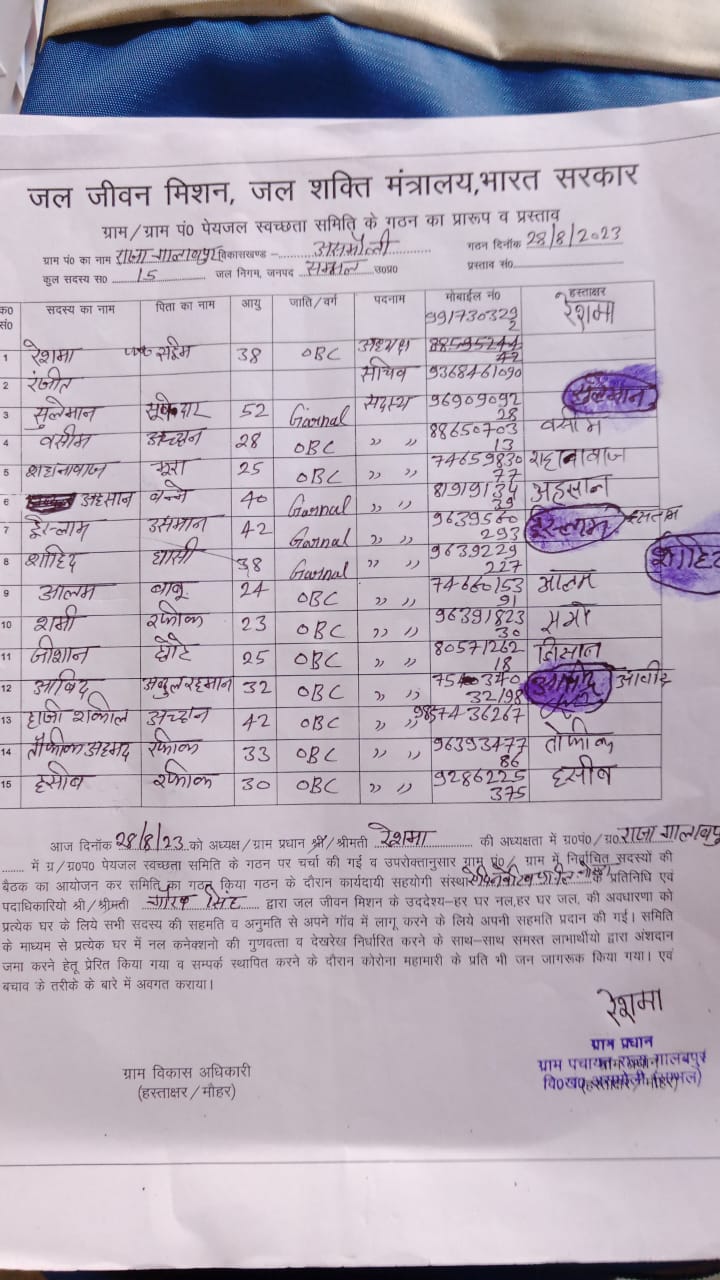 जल जीवन मिशन, जल शक्ति मंत्रालय,भारत सरकार
ग्राम/ग्राम पं० पेयजल स्वच्छता समिति के गठन का प्रारूप व प्रस्ताव
ग्राम पं० का नाम राजा गालाबपुर विकासखण्ड - असमौली गठन दिनॉक 28/8/2023
कुल सदस्य स० 15 जल निगम, जनपद सम्भल उ०प्र० प्रस्ताव सं०
क० सं० सदस्य का नाम पिता का नाम आयु जाति/वर्ग पदनाम मोबाईल नं० हस्ताक्षर
991730329 2 रेशमा
1 रेशमा 38 OBC अध्यक्ष
2 रंजीत सचिव 9368461090
3 सुलेमान 52 Garnal सदस्य 96909092 28 सुलेमान
4 वसीम अच्छन 28 OBC ,, ,, 88650703 13 वसीम
5 शहानावाज भूरा 25 OBC ,, ,, 74659830 77 शहानावाज
6 अहसान बन्ने 40 Garnal ,, ,, 8191913४ 39 अहसान
7 ईस्लाम उसमान 42 Garnal ,, ,, 9639560 293 ईस्लाम
8 शाहिद घासी 38 Garnal ,, ,, 9639229 227 शाहिद
9 आलम बाबू 24 OBC ,, ,, 74660153 91 आलम
10 शमी रफीक 23 OBC ,, ,, 96391823 30
11 जीशान छोटे 25 OBC ,, ,, 80571262 18
12 आबिद अबुल रहमान 32 OBC ,, ,, 32198 आवीद
13 हाजी शकील अच्छन 42 OBC ,, ,, 9857436267
14 तौफीक अहमद रफीक 33 OBC ,, ,, 96393477 86 तोफीक
15 हसीब रफीक 30 OBC ,, ,, 9286225 375 हसीब
आज दिनॉक 28/8/23 को अध्यक्ष/ग्राम प्रधान श्री/श्रीमती रेशमा की अध्यक्षता में ग्र०पं०/ग्र० राजा गालाबपुर
में ग्र/ग्र०प० पेयजल स्वच्छता समिति के गठन पर चर्चा की गई व उपरोक्तानुसार ग्राम पं०/ ग्राम में निर्वाचित सदस्यों की
बैठक का आयोजन कर समिति का गठन किया गया गठन के दौरान कार्यदायी सहयोगी संस्था के प्रतिनिधि एवं
पदाधिकारियो श्री/श्रीमती गौरव सिंह द्वारा जल जीवन मिशन के उददेश्य-हर घर नल,हर घर जल, की अवधारणा को
प्रत्येक घर के लिये सभी सदस्य की सहमति व अनुमति से अपने गॉव में लागू करने के लिये अपनी सहमति प्रदान की गई। समिति
के माध्यम से प्रत्येक घर में नल कनेक्शनो की गुणवत्ता व देखरेख निर्धारित करने के साथ-साथ समस्त लाभार्थीयो द्वारा अंशदान
जमा करने हेतू प्रेरित किया गया व सम्पर्क स्थापित करने के दौरान कोरोना महामारी के प्रति भी जन जागरूक किया गया। एवं
बचाव के तरीके के बारे में अवगत कराया।
रेशमा
ग्राम प्रधान
ग्राम विकास अधिकारी ग्राम पंचायत राजा गालबपुर
(हस्ताक्षर/मौहर) वि०ख० असमोली (सम्भल)